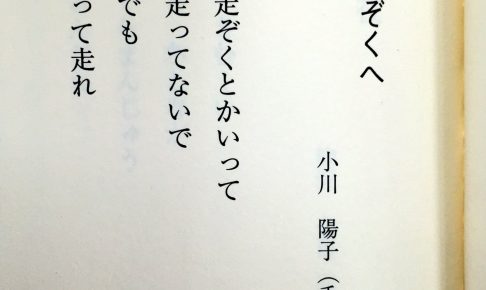 ぞくへ
小川 陽子（
走ぞくとかいって
走ってないで
でも
って走れ